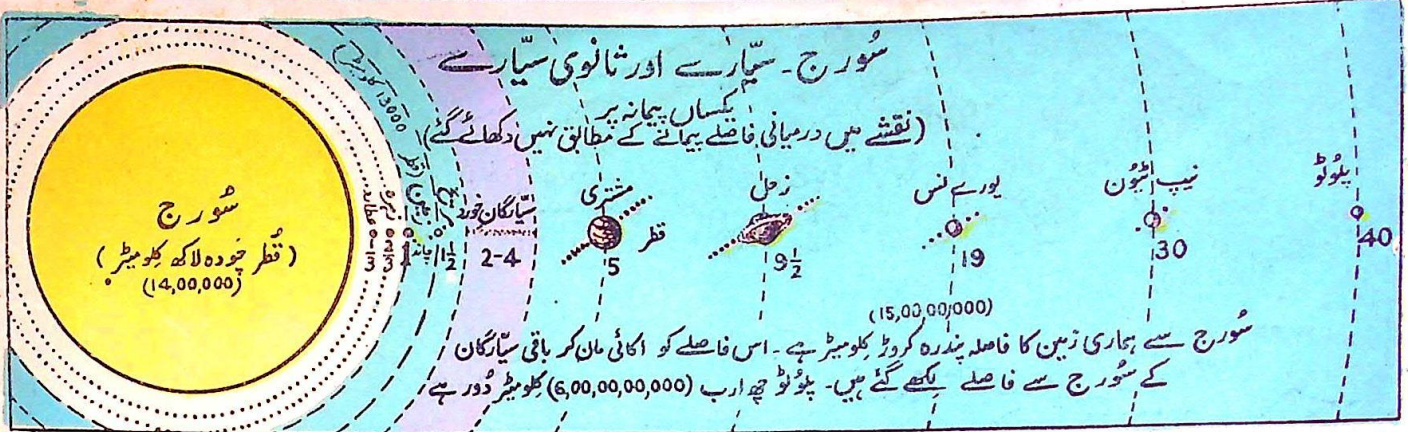 سُورج۔ سیّارے اور ثانوی سیّارے
یکساں پیمانہ پر
(نقشے میں درمیانی فاصلے پیمانے کے مطابق نہیں دکھائے گئے)
سُورج
(قُطر چَودہ لاکھ کِلومیٹر)
(14,00,000)
عطارد
1/3
زہرہ
2/3
زمین (قطر 13000 کلومیٹر)
1
چاند
مریخ
1½
سیّارگان خورد
2-4
مشتری
قطر
5
زحل
9½
یورے نس
19
نیپ ٹیُون
30
پلوُٹو
40
(15,00,00,000)
سُورج سے ہماری زمین کا فاصلہ پندرہ کروڑ کِلومیٹر ہے۔ اس فاصلے کو اکائی مان کر باقی سیّارگان
کے سُورج سے فاصلے لِکھے گئے ہیں۔ پلوُٹو چھ ارب (6,00,00,00,000) کِلومیٹر دُور ہے